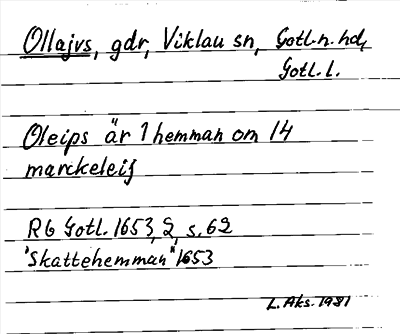 Ollajvs, gdr, Viklau sn, Gotl. n. hd,
Gotl. l.
Oleips är 1 hemman om 14
marckeleij
RG Gotl. 1653, 2, s. 62
"Skattehemman" 1653
L. Aks. 1981